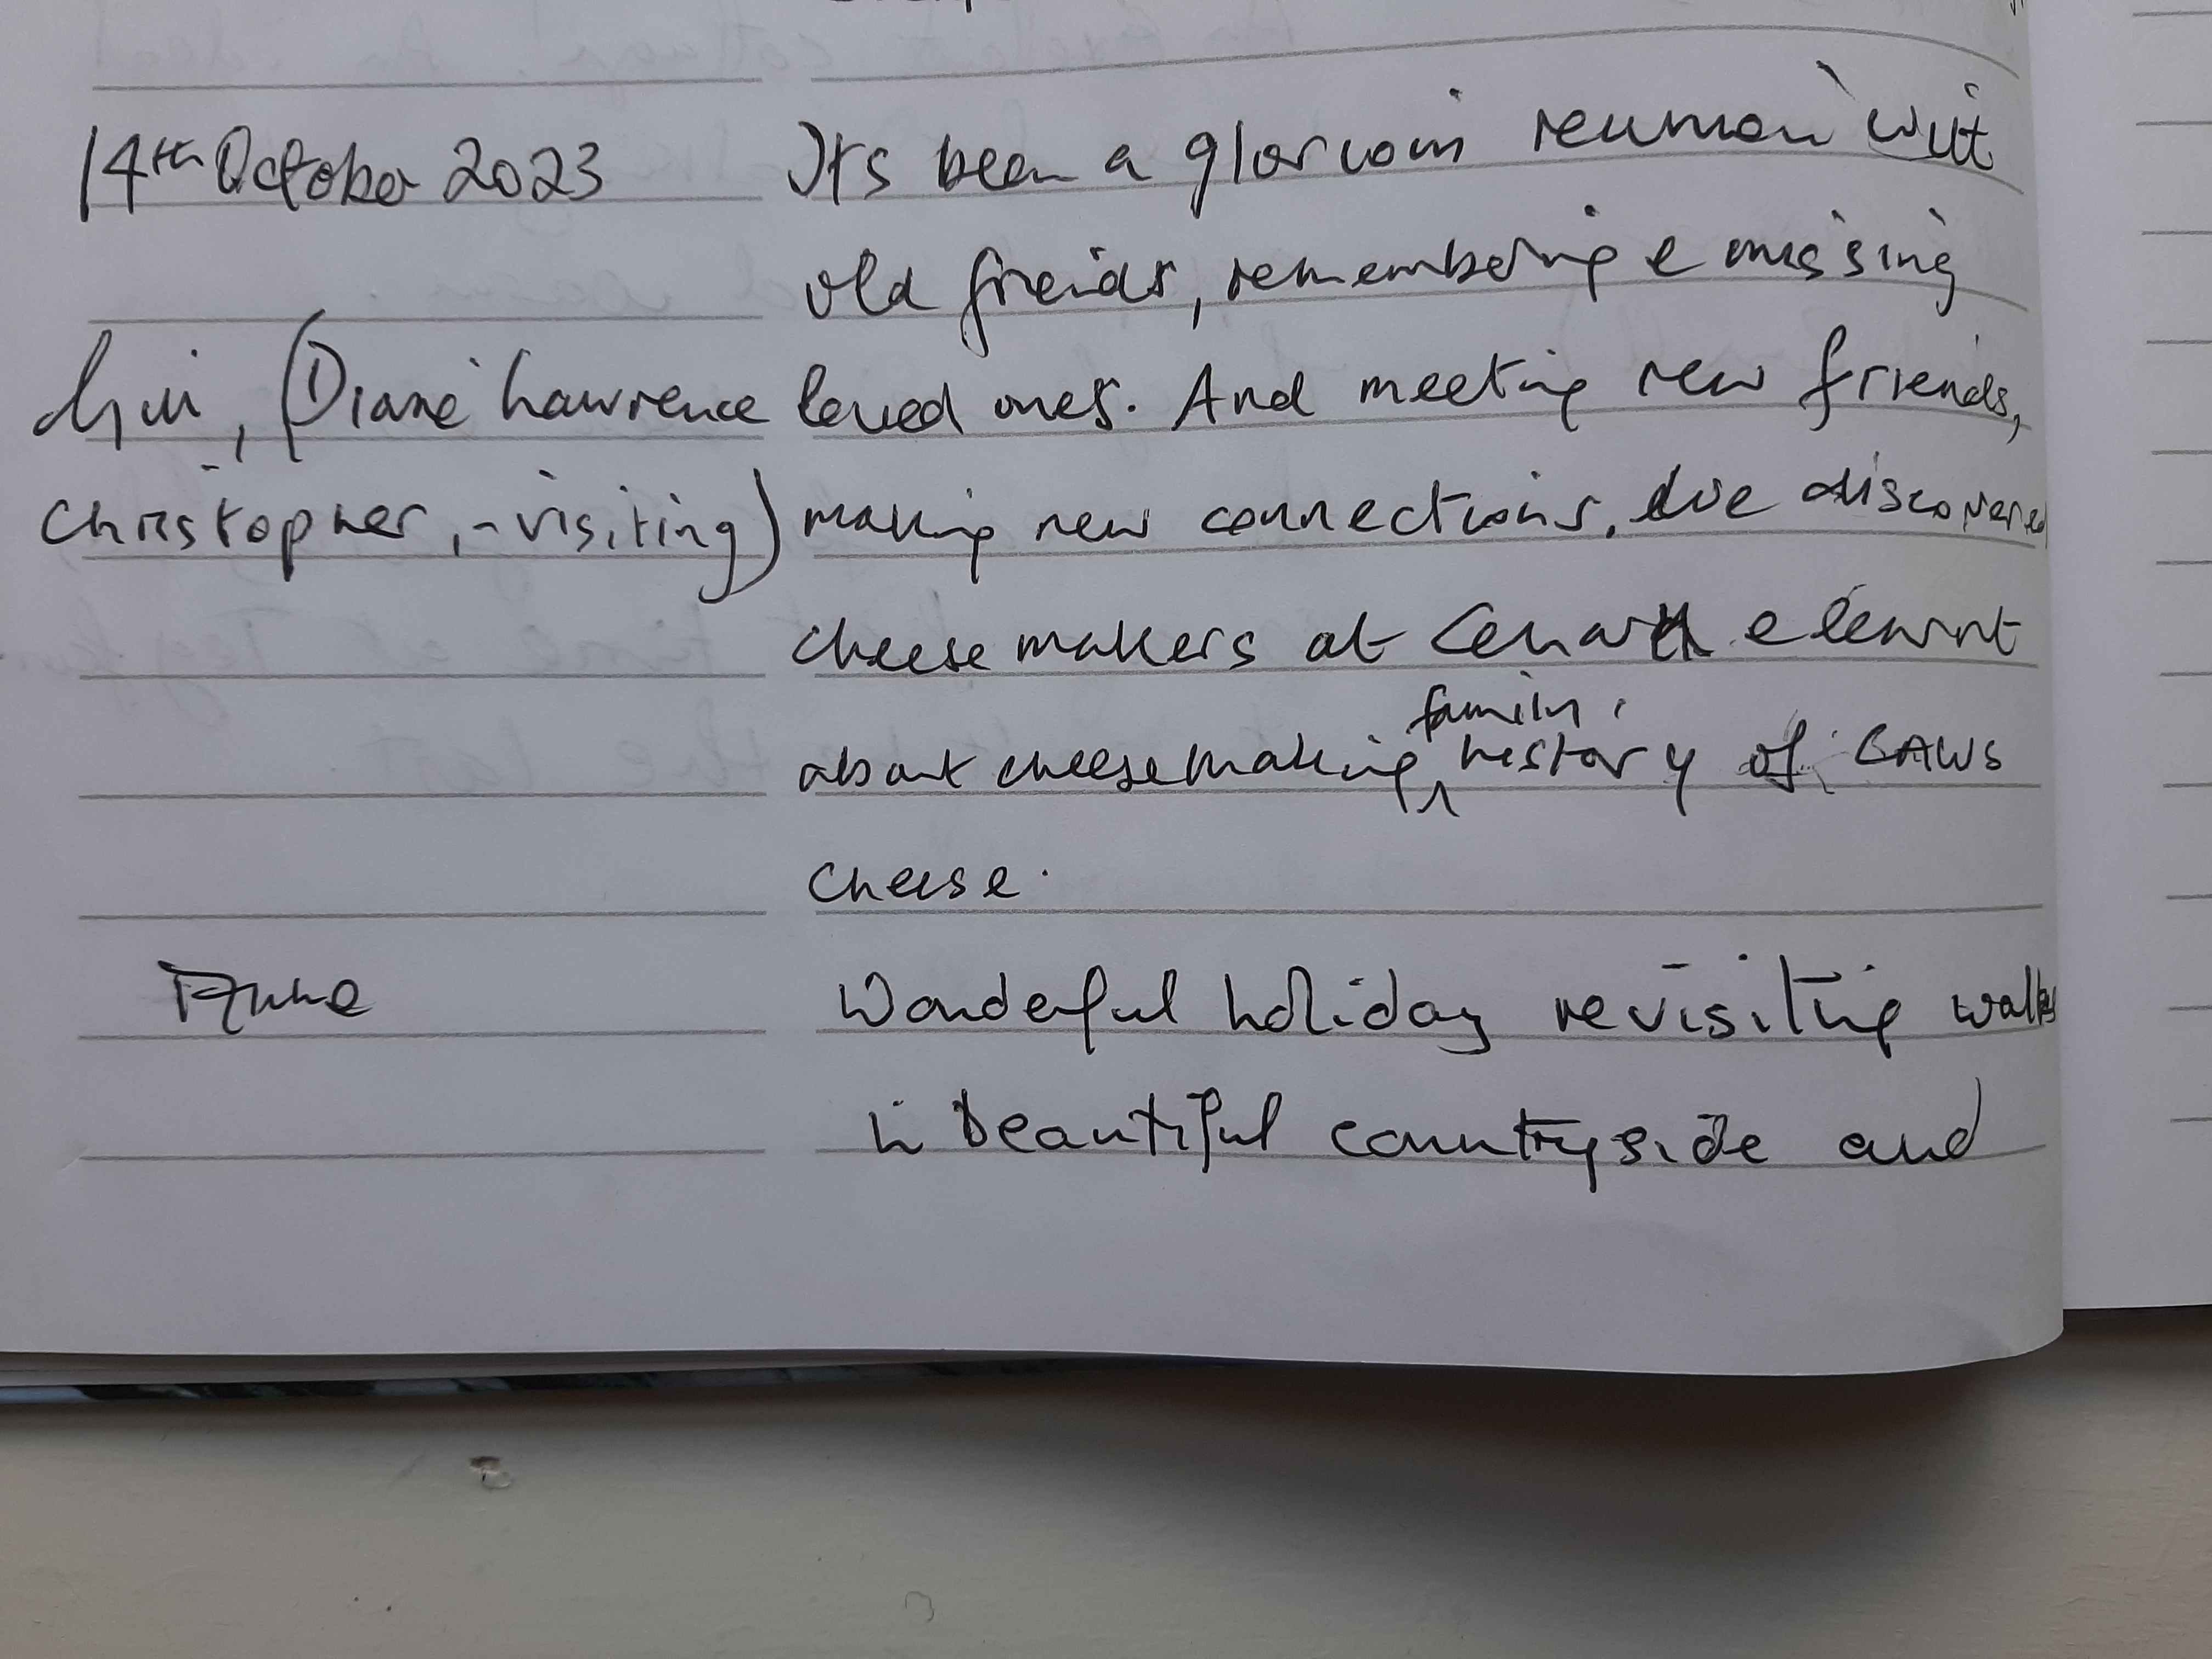 14th October 2023 It's been a glorious reunion with
old friends, remembering & missing
(Diane Lawrence loved ones. And meeting new friends,
Christopher, - visiting) making new connections. We discovered
cheese makers at Cenarth & learnt
about cheesemaking family history of CAWS
cheese.
Anne Wonderful holiday revisiting walks
in beautiful countryside and